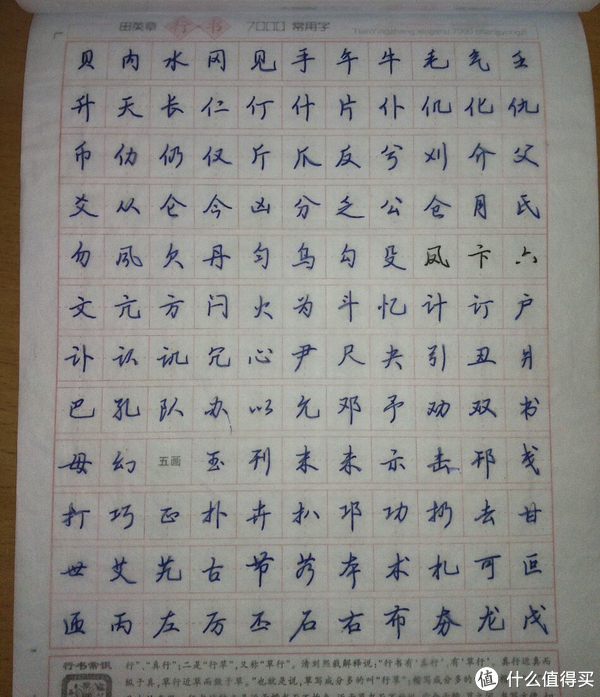 田英章 行·书 7000 常用字
贝 内 水 冈 见 手 午 牛 毛 气 壬
升 天 长 仁 仃 什 片 仆 仉 化 仇
币 仂 仍 仅 斤 爪 反 兮 刈 介 父
爻 从 仑 今 凶 分 乏 公 仓 月 氏
勿 风 欠 丹 匀 乌 勾 殳 凤 卞 六
文 亢 方 闩 火 为 斗 忆 计 订 户
讣 认 讥 冗 心 尹 尺 夬 引 丑 爿
巴 孔 队 办 以 允 邓 予 劝 双 书
毋 幻 五画 玉 刊 未 末 示 击 邗 戋
打 巧 正 扑 卉 扒 邛 功 扔 去 甘
世 艾 艽 古 节 艿 本 术 札 可 叵
匝 丙 左 厉 丕 石 右 布 夯 龙 戊
行书常识 行”、“真行”;二是“行草”,又称“草行”。清刘熙载解释说:“行书有‘真行’,有‘草行’。真行近真而
纵于真,草行近草而敛于草。”也就是说,草写成分多的叫“行草”;楷写成分多的
什么值得买